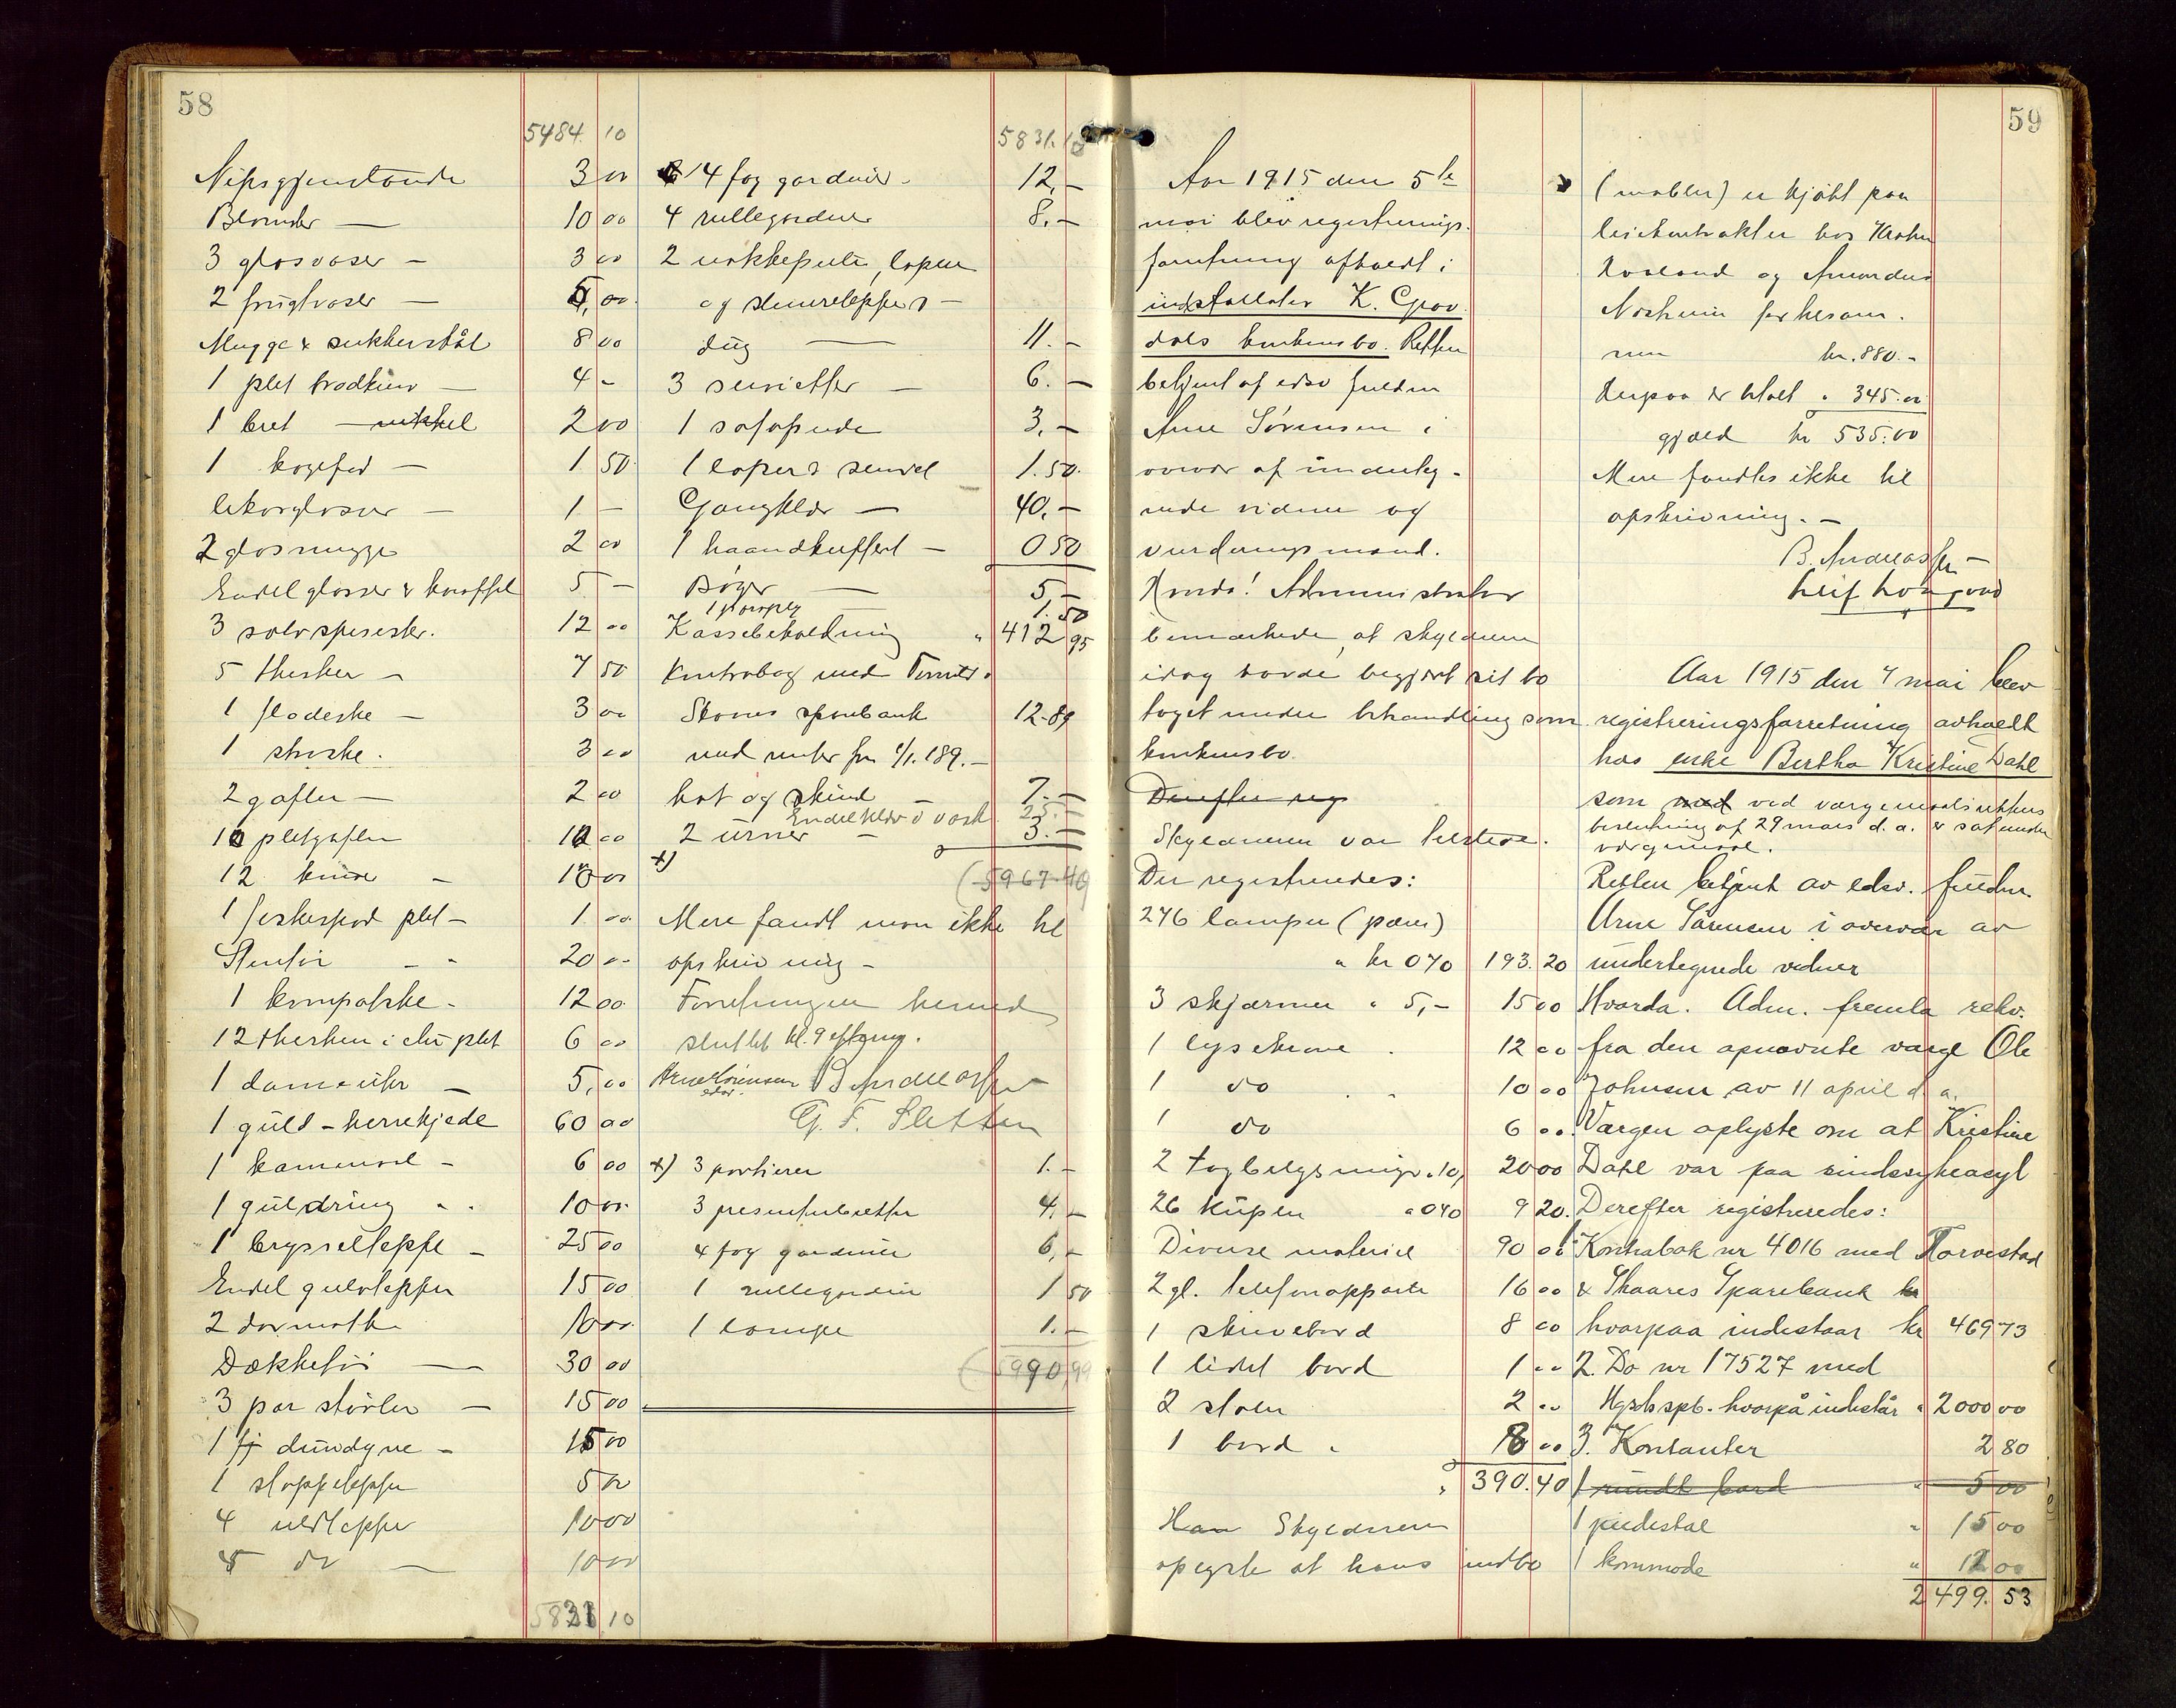 58
5484 10
Nipsgjenstande 3 00
Blomster — 10 00
3 glasvaser — 3 00
2 frugtvaser — 5,00
Mugge & sukkerskål 8 00
1 plet brødkurv — 4 –
1 bret — nikkel 2 00
1 kagefad — 1 50
likørglasser — 1 –
2 glasmugge 2 00
Endel glasser & karaffel 5 –
3 sølvspiseskr. 12 00
5 theskeer – 7 50
1 flødeske – 3 00
1 strøske. 3 00
2 gafler — 2 00
10 pletgafler 10 00
12 kniver – 10 00
1 fiskespad plet – 1 00
Stentøi – " 20 00
1 kompotske – 12 00
12 theskeer i etui plet 6 00
1 dameuhr – 5,00
1 guld – herrekjede 60 00
1 kammerad – 6 00
1 guldring " . 10 00
1 brysselteppe – 25 00
Endel gulvtepper 15 00
2 dørmatte 10 00
Dækketøi — 30 00
3 par støvler — 15 00
1 fj dundyne – 15 00
1 stoppeteppe 5 00
4 uldtepper 10 00
5 do — 10 00
5831 10
5831.10
14 fag gardiner – 12,–
4 rullegardiner 8.–
2 nakkeputer, løper
og skuretepper –
dug — 11.–
3 servietter — 6.–
1 sofapude 3,–
1 løper 1.50
Gangklær — 40,–
1 haandkuffert — 0 50
Bøger — 5,–
1.50
Kassebeholdning " 412 95
Kontrabog med
Skaares sparebank 12.89
med renter fra 1/1. 189.–
hat og skind – 7.–
Endel klær & vask 25.–
2 urner – 3.–
x)
(5967.40
Mere fandt man ikke til
opskrivning –
Forretningen hermed
sluttet kl. 9 efterm.
Arne Sørensen B. Andreassen
edsv.
G. F. Sletten
x) 3 portierer 1.–
3 presenterbretter 4.–
4 fag gardiner 6,–
1 rullegardin 1 50
1 lampe 1.–
(5990,99
59
Aar 1915 den 5te
mai blev registrerings-
forretning afholdt i
installatør K. Grov
dals konkursbo. Retten
betjent af edsv fuldm
Arne Sørensen i
overvær af underteg-
nede vidner og
vurderingsmænd.
Hvorda! Administrator
bemærkede, at skyldneren
idag havde begjært sit bo
taget under behandling som
konkursbo.
Derefter reg
Skyldneren var tilstede.
Der registreredes:
276 lamper (pærer)
" kr 0 70 193.20
3 skjærmer " 5,– 15 00
1 lysekrone . 12 00
1 do . " 10 00
1 do 6 00
2 " 10, 20 00
26 kupler " 0 40 9 20.
Diverse materiel 90 00
2 gl. telefonapparater 16 00
1 skrivebord 8 00
1 lidet bord 1 00
2 stoler 2 00
1 bord " 8 00
" 390.40
Han Skyldneren
oplyste at hans indbo
(møbler) er kjøbt paa
leiekontrakter hos
Rosland og Amandus
Norheim for tilsam.
men kr. 880.–
Herpaa er betalt " 345.00
gjæld kr 535:00
Mere fandtes ikke til
opskrivning. –
B. Andreassen –
Leif
Aar 1915 den 7 mai blev
registreringsforretning avholdt
hos enke Bertha Kristine Dahl
som med ved værgemaalsrettens
beslutning af 29 mars d. a. er sat under
værgemaal.
Retten betjent av edsv. fuldm.
Arne Sørensen i overvær av
undertegnede vidner
Hvorda. Adm. fremla rekv.
fra den opnævnte værge Ole
Johnsen av 11 april d. a.
Værgen oplyste om at Kristine
Dahl var paa sindssykeasyl
Derefter registreredes:
1. Kontrabok nr 4016 med Torvestad
& Skaares Sparebank kr
hvorpaa indestaar kr 469 73
2. Do nr 17527 med
Hgsds spb. hvorpå indestår " 2000 00
3. Kontanter 2 80
1 rundt bord " 5 00
1 piedestal " 15 00
1 kommode " 12 00
2499. 53